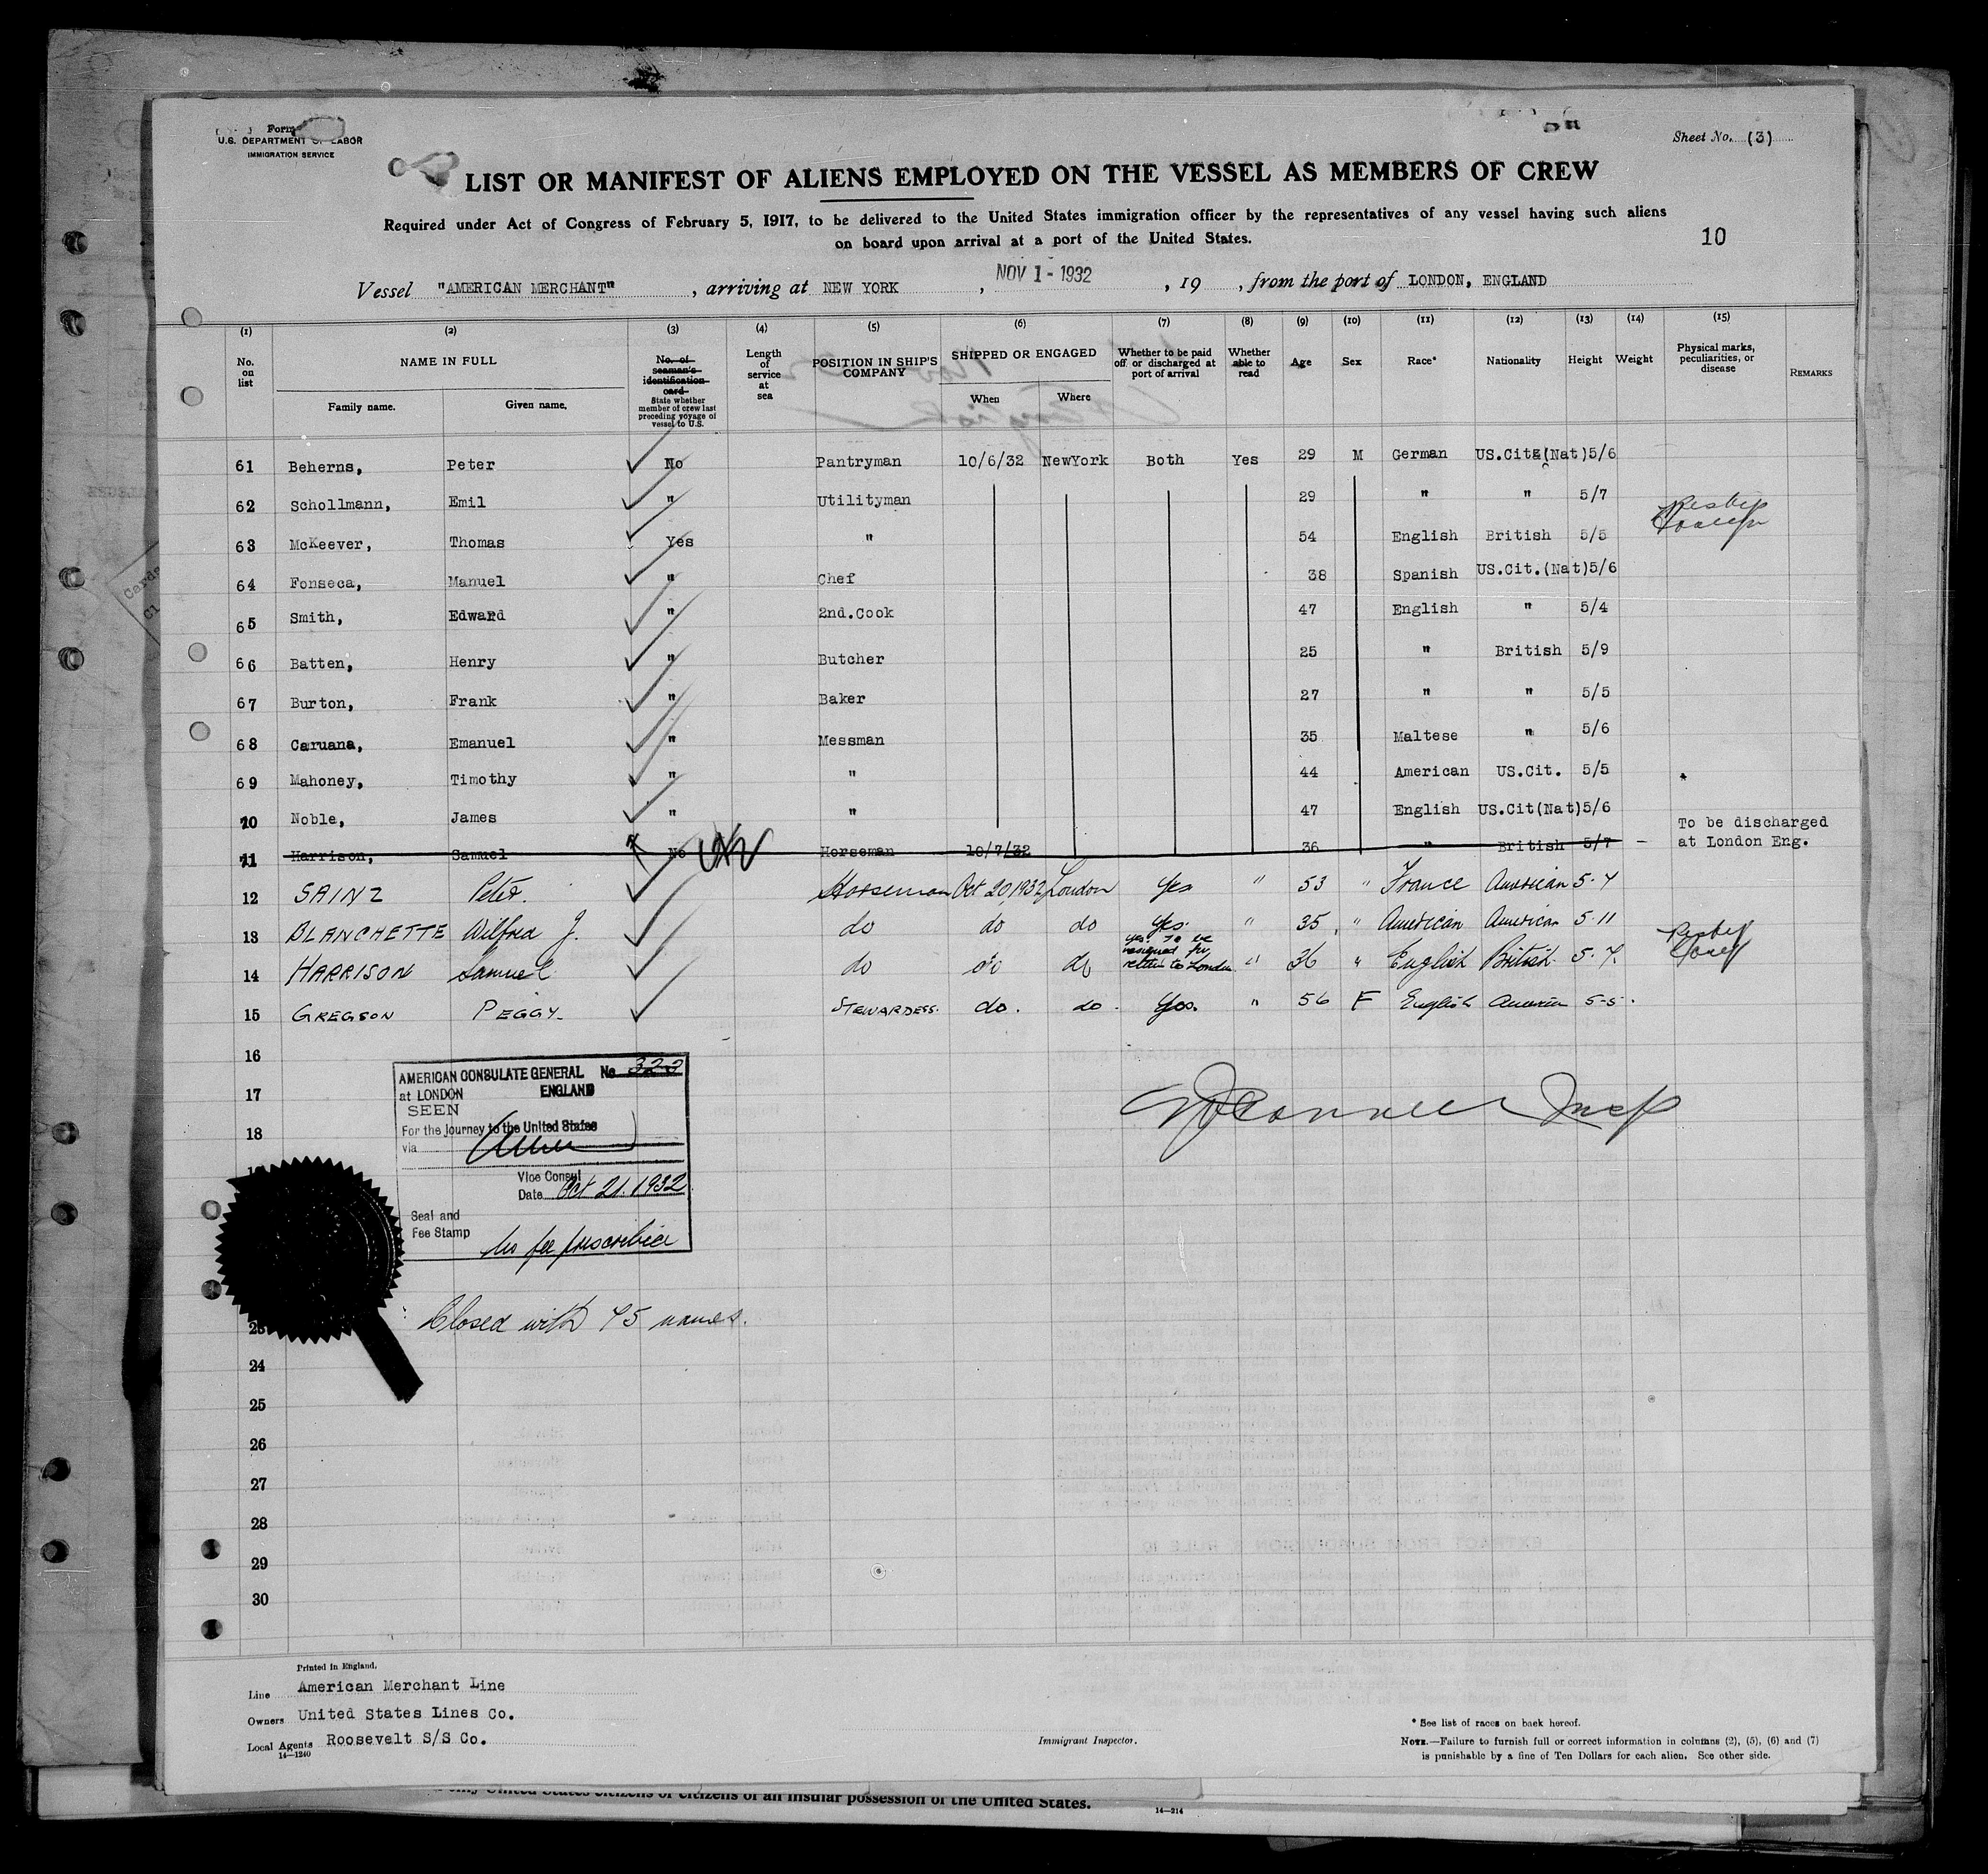 Form
U.S. DEPARTMENT OF LABOR
IMMIGRATION SERVICE
Sheet No. (3)
LIST OR MANIFEST OF ALIENS EMPLOYED ON THE VESSEL AS MEMBERS OF CREW
Required under Act of Congress of February 5, 1917, to be delivered to the United States immigration officer by the representatives of any vessel having such aliens
on board upon arrival at a port of the United States.
10
Vessel "AMERICAN MERCHANT", arriving at NEW YORK, NOV 1 - 1932, 19 , from the port of LONDON, ENGLAND
(1) (2) (3) (4) (5) (6) (7) (8) (9) (10) (11) (12) (13) (14) (15)
No. on list
NAME IN FULL
Family name. Given name.
No. of seaman's identification card
State whether member of crew last preceding voyage of vessel to U.S.
Length of service at sea
POSITION IN SHIP'S COMPANY
SHIPPED OR ENGAGED
When Where
Whether to be paid off or discharged at port of arrival
Whether able to read
Age
Sex
Race*
Nationality
Height
Weight
Physical marks, peculiarities, or disease
REMARKS
61 Beherns, Peter No Pantryman 10/6/32 NewYork Both Yes 29 M German US.Cit.(Nat)5/6
62 Schollmann, Emil " Utilityman 29 " " 5/7
63 McKeever, Thomas Yes " 54 English British 5/5
64 Fonseca, Manuel " Chef 38 Spanish US.Cit.(Nat)5/6
65 Smith, Edward " 2nd.Cook 47 English " 5/4
66 Batten, Henry " Butcher 25 " British 5/9
67 Burton, Frank " Baker 27 " " 5/5
68 Caruana, Emanuel " Messman 35 Maltese " 5/6
69 Mahoney, Timothy " " 44 American US.Cit. 5/5
70 Noble, James " " 47 English US.Cit(Nat)5/6
71 Harrison, Samuel No Horseman 10/7/32 36 " British 5/7 To be discharged
at London Eng.
12 SAINZ Peter. Horseman Oct 20,1932 London Yes " 53 " France American 5.4
13 BLANCHETTE Wilfred J. do do do Yes. " 35 " American American 5.11
14 HARRISON Samuel do do do Yes. To be resigned for return to London " 36 " English British 5.7.
15 GREGSON PEGGY. STEWARDESS. do. do. Yes. " 56 F English American 5-5.
16
17
18
AMERICAN CONSULATE GENERAL No 322
at LONDON ENGLAND
SEEN
For the journey to the United States
via
Vice Consul
Date Oct 21. 1932
Seal and
Fee Stamp
No fee prescribed
Insp
Closed with 75 names.
24
25
26
27
28
29
30
Printed in England.
Line American Merchant Line
Owners United States Lines Co.
Local Agents Roosevelt S/S Co.
14—1240
Immigrant Inspector.
* See list of races on back hereof.
NOTE.—Failure to furnish full or correct information in columns (2), (5), (6) and (7)
is punishable by a fine of Ten Dollars for each alien. See other side.
United States citizens or citizens of an insular possession of the United States.
14—214